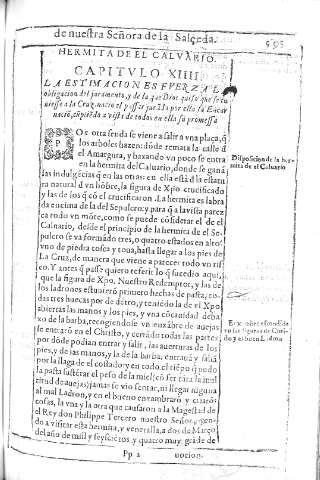 de nuestra Señora de la Salçeda.
595
HERMITA DE EL CALVARIO.
CAPITVLO XIIII.
LA ESTIMACION ES FVERZA LA
obligacion del juramento, y de la que Dios quiso que se tu
uiesse a la Cruz
nació, cūplida a vista de todos en ella su promessa
POr otra senda se viene a salir a vna plaça, q̄
los arboles hazen: dōde remata la calle d̄
el Amargura, y baxando vn poco se entra
en la hermita del Caluario, donde se ganā
las indulgēcias q̄ en las otras: en ella està d̄ la estatu
ra natural d̄ vn hōbre, la figura de Xpo crucificado
y las de los q̄ cō el crucificaron. La hermita es labra
da encima de la del Sepulcro: y para q̄ a la vista parez
ca todo vn mōre, como se puede cōsiderar el de el
Caluario, desde el principio de la hermita de el Se-
pulcro se va formādo tres, o quatro estados en alto
vno de piedra tosca y toua, hasta llegar a los pies de
La Cruz, de manera que viene a parecer todo vn ris
co. Y antes q̄ passe quiero referir lo q̄ sucedio aqui,
que la figura de Xpo. Nuestro Redemptor, y las de
los ladrones estuuierō primero hechas de pasta, to-
das tres huecas por de dētro, y teniēdo la de el Xpo
abiertas las manos y los pies, y vna cōcauidad deba
xo de la barba, recogiendose vn enxābre de auejas
se entrarō en el Christo, y cerrādo todas las partes
por dōde podian entrar y salir, las aberturas de los
pies, y de las manos, y la de la barba: entrauā y saliā
por la llaga de el costado y en todo el tiēpo q̄ pudo
la pasta sustētar el peso de la miel (cō ser tāta la mul
titud de auejas) jamas se vio sentar, ni llegar ninguna
al mal Ladron, y en el bueno enxambraro y criarō:
cosas, la vna y la otra que causaron a la Magestad de
el Rey don Philippe Tercero nuestro Señor, yen-
do a visitar esta hermita, y veneralla, a dos de Março
del año de mil y seyscietos, y quatro muy grāde de
Pp 2
uocion.
Disposicion de la her
mita de el Caluario